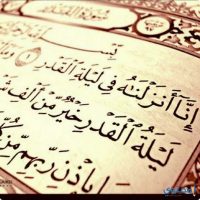 سُورَةُ القَدْرِ
بِسْمِ
إِنَّا أَنزَلْنَٰهُ فِي لَيْلَةِ ٱلْقَدْرِ ١
لَيْلَةُ ٱلْقَدْرِ خَيْرٌ مِّنْ أَلْفِ
بِإِذْنِ رَبِّهِم مِّن